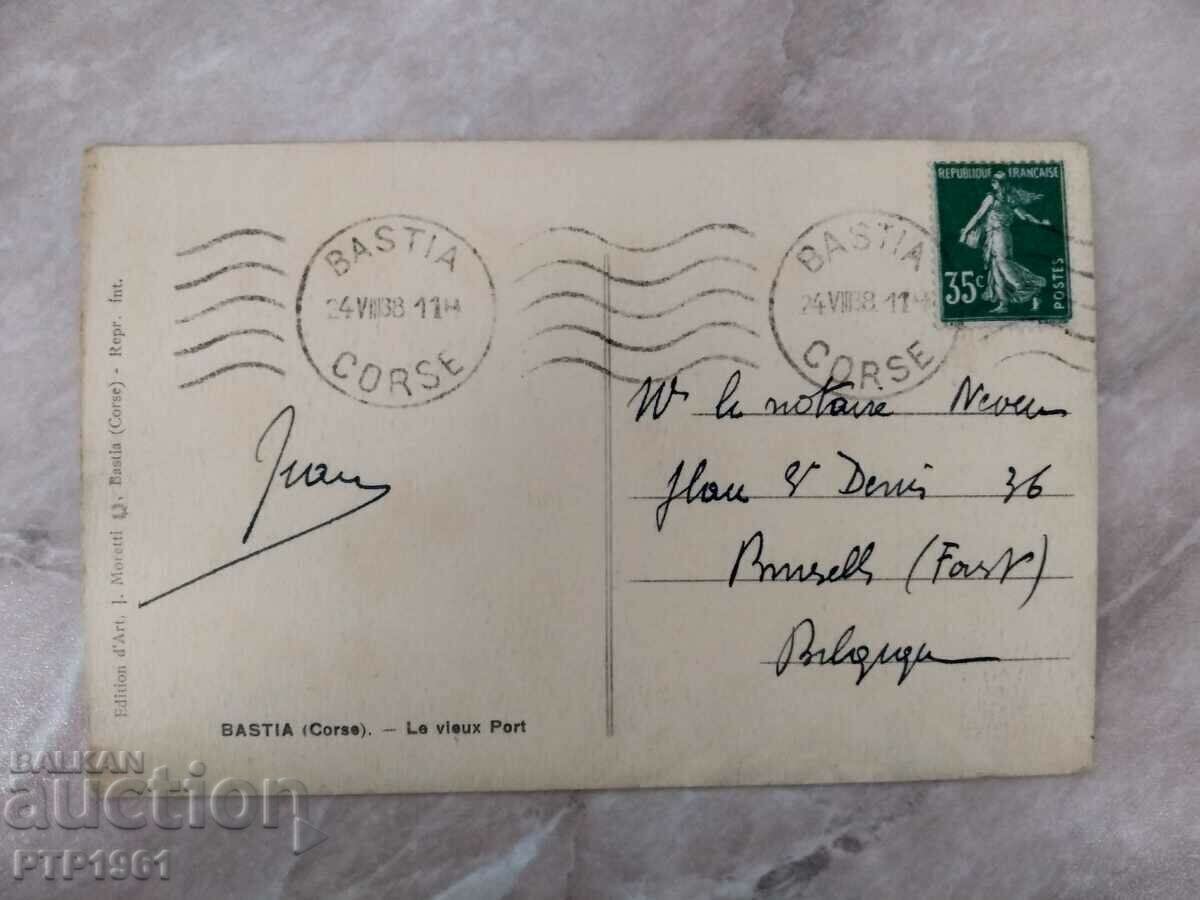 BASTIA
24 VIII 38. 11H
CORSE
BASTIA
24 VIII 38. 11
CORSE
REPUBLIQUE FRANÇAISE
35c
POSTES
Mr le notaire
St Denis 36
Bruxelles (Forest)
Belgique
Jean
Edition d'Art, J. Moretti, Bastia (Corse) - Repr. Int.
BASTIA (Corse). — Le vieux Port
BALKAN
auction
PTP1961